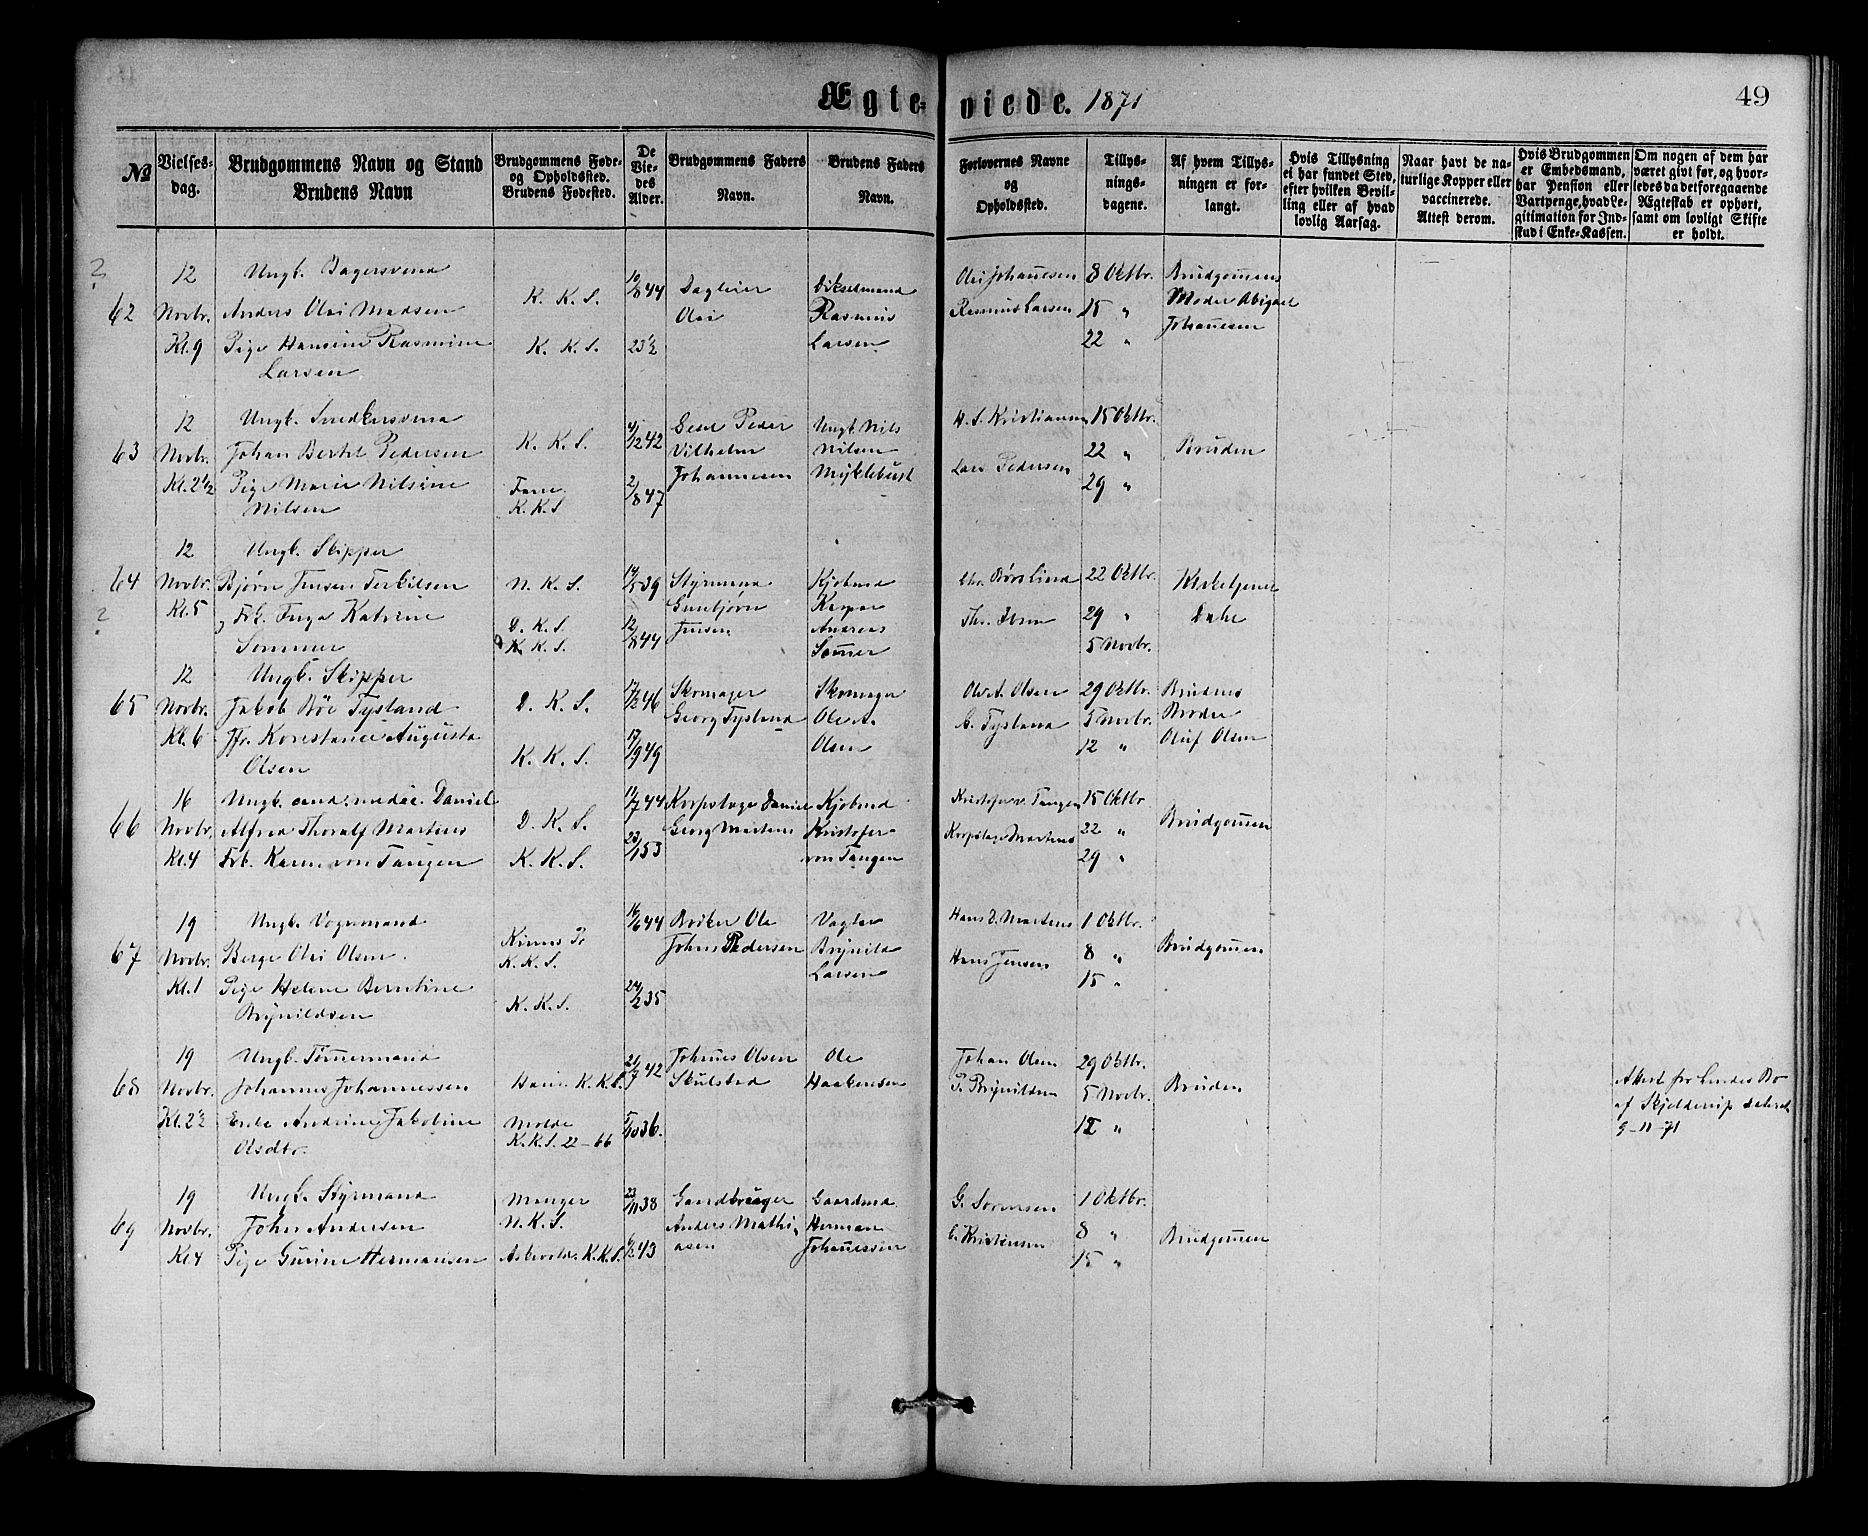 Ægte-
viede. 1871
49
№
Vielses-
dag.
Brudgommens Navn og Stand
Brudens Navn
Brudgommens Føde-
og Opholdssted.
Brudens Fødested.
De
Vie-
des
Alder.
Brudgommens Faders
Navn.
Brudens Faders
Navn.
Forlovernes Navne
og
Opholdssted.
Tillys-
nings-
dagene.
Af hvem Tillys-
ningen er for-
langt.
Hvis Tillysning
ei har fundet Sted,
efter hvilken Bevil-
ling eller af hvad
lovlig Aarsag.
Naar havt de na-
turlige Kopper eller
vaccinerede.
Attest derom.
Hvis Brudgommen
er Embedsmand,
har Pension eller
Vartpenge, hvad Le-
gitimation for Ind-
skud i Enke-Kassen.
Om nogen af dem har
været givt før, og hvor-
ledes da det foregaaende
Ægteskab er ophørt,
samt om lovligt Skifte
er holdt.
?
62
12
Novbr.
Kl. 9
Ungk. Bagersvend
Anders Olai Madsen
Pige Hansine Rasmine
Larsen
K. K. S.
K. K. S.
10/8 44
23½
Dagleier
Olai
Rasmus
Larsen
Olai Johannesen
Rasmus Larsen
8 Oktbr.
15 "
22 "
Brudgomens
Moder Abigael
Johannesen
63
12
Novbr.
Kl. 2½
Ungk. Snedkersvend
Johan Bertel Pedersen
Pige Marie Nilsine
Nilsen
K. K. S.
K. K. S
4/12 42
2/8 47
Peder
Vilhelm
Johannesen
Ungk. Nils
Nilsen
Myklebust
H. S. Kristiansen
Lars Pedersen
15 Oktbr.
22 "
29 "
Bruden
64
?
12
Novbr.
Kl. 5
Ungk. Skipper
Bjørn Jensen Terkilsen
Frk. Inga Katrine
Sommer
N. K. S.
D. K. S
K. K. S.
39
12/8 44
Styrmand
Gunbjørn
Jensen
Kjøbmd
Kaspar
Andreas
Somer
Chr. Børs Lind
Thr. Ibsen
22 Oktbr.
29 "
5 Novbr.
Kirketjener
Dahl
65
12
Novbr.
Kl. 6
Ungk. Skipper
Jakob Bøe Tysland
Jfr. Konstance Augusta
Olsen
D. K. S.
K. K. S.
17/12 46
17/9 49
Skomager
Georg Tysland
Skomager
Ole A.
Olsen
Ole A. Olsen
G. Tysland
29 Oktbr.
5 Novbr.
12 "
Brudens
Broder
Oluf Olsen
66
16
Novbr.
Kl. 4
Ungk. cand. medic. Daniel
Alfred Thoralf Martens
Frk. Karen von Tangen
D. K. S.
K. K. S.
11/7 44
23/1 53
Korpslæge Daniel
Georg Martens
Kjøbmd
Kristofer
von Tangen
Kristofer v. Tangen
Korpslæge Martens
15 Oktbr.
22 "
29 "
Brudgomen
67
19
Novbr.
Kl. 1
Ungk. Vognmand
Berge Olai Olsen
Pige Helene Berntine
Brynildsen
Kinns Pr
K. K. S.
K. K. S.
16/6 44
24/2 35
Bøkker Ole
Johns Pedersen
Vægter
Brynild
Larsen
Hans D. Martens
Hans Jensen
1 Oktbr.
8 "
15 "
Brudgomen
68
19
Novbr.
Kl. 2½
Ungk. Tømermand
Johannes Johannessen
Enke Andrine Jakobine
Olsdtr.
Haus. K. K. S.
Molde
K. K. S. 22-66
21/7 42
5/10 36.
Johnes Olsen
Skulstad
Ole
Haakensen
Johan Olsen
P. Brynildsen
29 Oktbr.
5 Novbr.
12 "
Bruden
Attest fra Bo
af Skjelderup dateret
9-11-71
69
19
Novbr.
Kl 4
Ungk. Styrmand
John Andersen
Pige Gurine Hermansen
Manger
N. K. S.
Askvold. K. K. S.
23/11 38
6/2 43
Gaardbruger
Anders Mathi-
asen
Gaardmd.
Herman
Johannessen
G. Sørensen
C. Kristensen
1 Oktbr.
8 "
15 "
Brudgomen